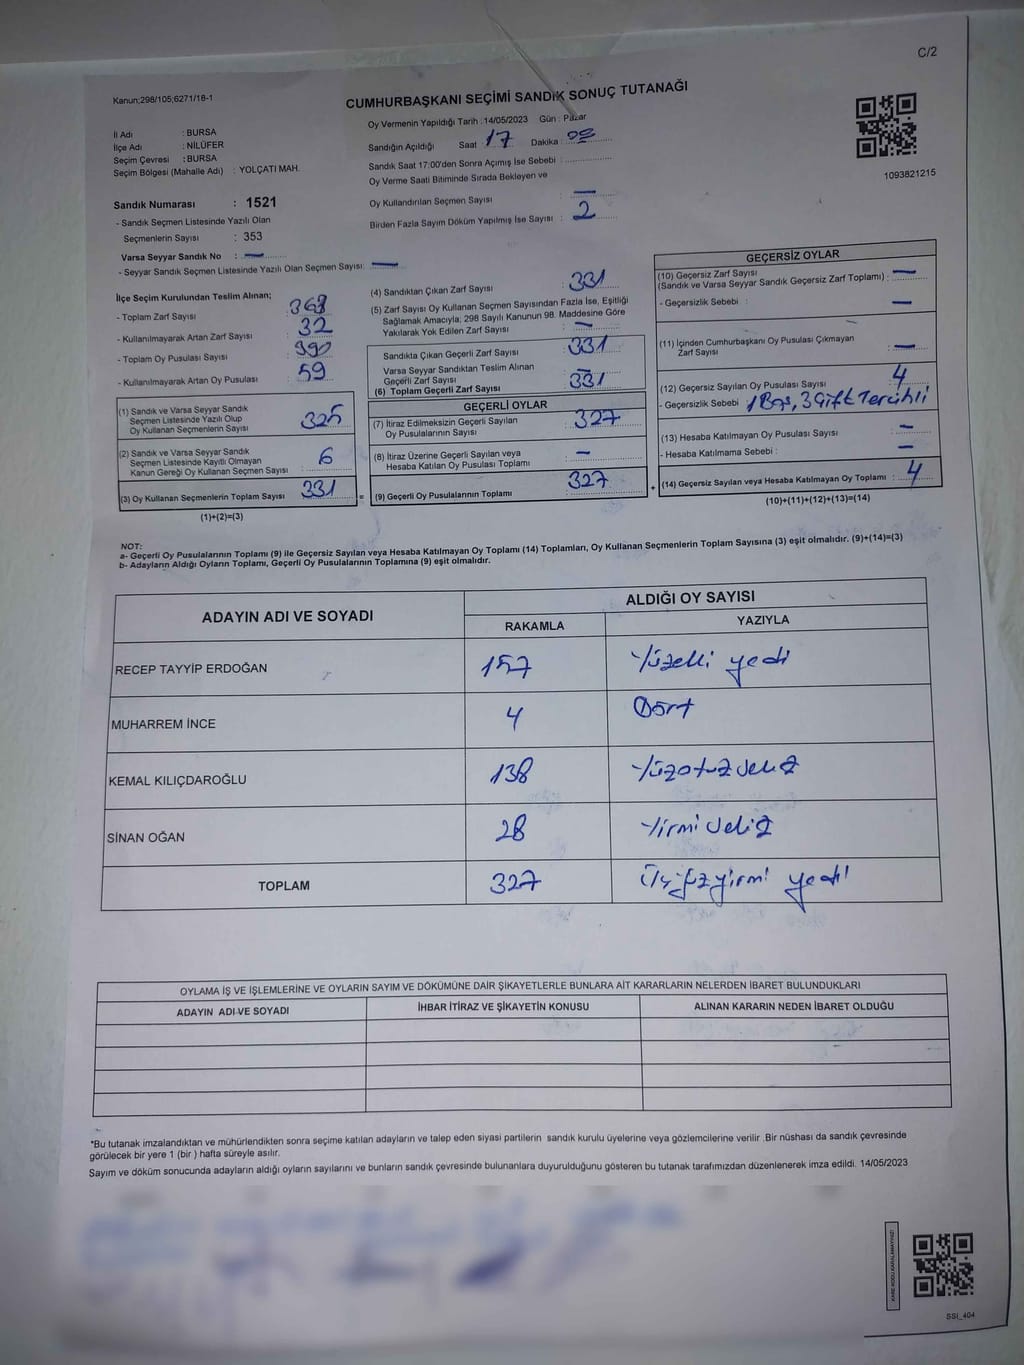 C/2
Kanun;298/105;6271/18-1
CUMHURBAŞKANI SEÇİMİ SANDIK SONUÇ TUTANAĞI
İl Adı : BURSA
İlçe Adı : NİLÜFER
Seçim Çevresi : BURSA
Seçim Bölgesi (Mahalle Adı) : YOLÇATI MAH.
Sandık Numarası : 1521
- Sandık Seçmen Listesinde Yazılı Olan
Seçmenlerin Sayısı : 353
Varsa Seyyar Sandık No : —
- Seyyar Sandık Seçmen Listesinde Yazılı Olan Seçmen Sayısı: —
Oy Vermenin Yapıldığı Tarih :14/05/2023 Gün : Pazar
Sandığın Açıldığı Saat 17 Dakika
Sandık Saat 17:00'den Sonra Açımış İse Sebebi :
Oy Verme Saati Bitiminde Sırada Bekleyen ve
Oy Kullandırılan Seçmen Sayısı —
Birden Fazla Sayım Döküm Yapılmış İse Sayısı : 2
1093821215
İlçe Seçim Kurulundan Teslim Alınan;
- Toplam Zarf Sayısı : 363
- Kullanılmayarak Artan Zarf Sayısı : 32
- Toplam Oy Pusulası Sayısı : 390
- Kullanılmayarak Artan Oy Pusulası : 59
(1) Sandık ve Varsa Seyyar Sandık
Seçmen Listesinde Yazılı Olup
Oy Kullanan Seçmenlerin Sayısı : 325
(2) Sandık ve Varsa Seyyar Sandık
Seçmen Listesinde Kayıtlı Olmayan
Kanun Gereği Oy Kullanan Seçmen Sayısı : 6
(3) Oy Kullanan Seçmenlerin Toplam Sayısı : 331
(1)+(2)=(3)
=
(4) Sandıktan Çıkan Zarf Sayısı : 331
(5) Zarf Sayısı Oy Kullanan Seçmen Sayısından Fazla İse, Eşitliği
Sağlamak Amacıyla; 298 Sayılı Kanunun 98. Maddesine Göre
Yakılarak Yok Edilen Zarf Sayısı : —
Sandıkta Çıkan Geçerli Zarf Sayısı : 331
Varsa Seyyar Sandıktan Teslim Alınan
Geçerli Zarf Sayısı : —
(6) Toplam Geçerli Zarf Sayısı : 331
GEÇERLİ OYLAR
(7) İtiraz Edilmeksizin Geçerli Sayılan
Oy Pusulalarının Sayısı : 327
(8) İtiraz Üzerine Geçerli Sayılan veya
Hesaba Katılan Oy Pusulası Toplamı : —
(9) Geçerli Oy Pusulalarının Toplamı : 327
+
GEÇERSİZ OYLAR
(10) Geçersiz Zarf Sayısı
(Sandık ve Varsa Seyyar Sandık Geçersiz Zarf Toplamı) : —
- Geçersizlik Sebebi : —
(11) İçinden Cumhurbaşkanı Oy Pusulası Çıkmayan
Zarf Sayısı : —
(12) Geçersiz Sayılan Oy Pusulası Sayısı : 4
- Geçersizlik Sebebi 1 Boş, 3 Çift Tercihli
(13) Hesaba Katılmayan Oy Pusulası Sayısı : —
- Hesaba Katılmama Sebebi : —
(14) Geçersiz Sayılan veya Hesaba Katılmayan Oy Toplamı : 4
(10)+(11)+(12)+(13)=(14)
NOT:
a- Geçerli Oy Pusulalarının Toplamı (9) ile Geçersiz Sayılan veya Hesaba Katılmayan Oy Toplamı (14) Toplamları, Oy Kullanan Seçmenlerin Toplam Sayısına (3) eşit olmalıdır. (9)+(14)=(3)
b- Adayların Aldığı Oyların Toplamı, Geçerli Oy Pusulalarının Toplamına (9) eşit olmalıdır.
ADAYIN ADI VE SOYADI ALDIĞI OY SAYISI
RAKAMLA YAZIYLA
RECEP TAYYİP ERDOĞAN 157 Yüzelli yedi
MUHARREM İNCE 4 Dört
KEMAL KILIÇDAROĞLU 138 Yüzotuz sekiz
SİNAN OĞAN 28 Yirmi sekiz
TOPLAM 327 Üçyüzyirmi yedi
OYLAMA İŞ VE İŞLEMLERİNE VE OYLARIN SAYIM VE DÖKÜMÜNE DAİR ŞİKAYETLERLE BUNLARA AİT KARARLARIN NELERDEN İBARET BULUNDUKLARI
ADAYIN ADI VE SOYADI İHBAR İTİRAZ VE ŞİKAYETİN KONUSU ALINAN KARARIN NEDEN İBARET OLDUĞU
*Bu tutanak imzalandıktan ve mühürlendikten sonra seçime katılan adayların ve talep eden siyasi partilerin sandık kurulu üyelerine veya gözlemcilerine verilir .Bir nüshası da sandık çevresinde
görülecek bir yere 1 (bir ) hafta süreyle asılır.
Sayım ve döküm sonucunda adayların aldığı oyların sayılarını ve bunların sandık çevresinde bulunanlara duyurulduğunu gösteren bu tutanak tarafımızdan düzenlenerek imza edildi. 14/05/2023
KARE KODU KARALAMAYINIZ!
SSI_404